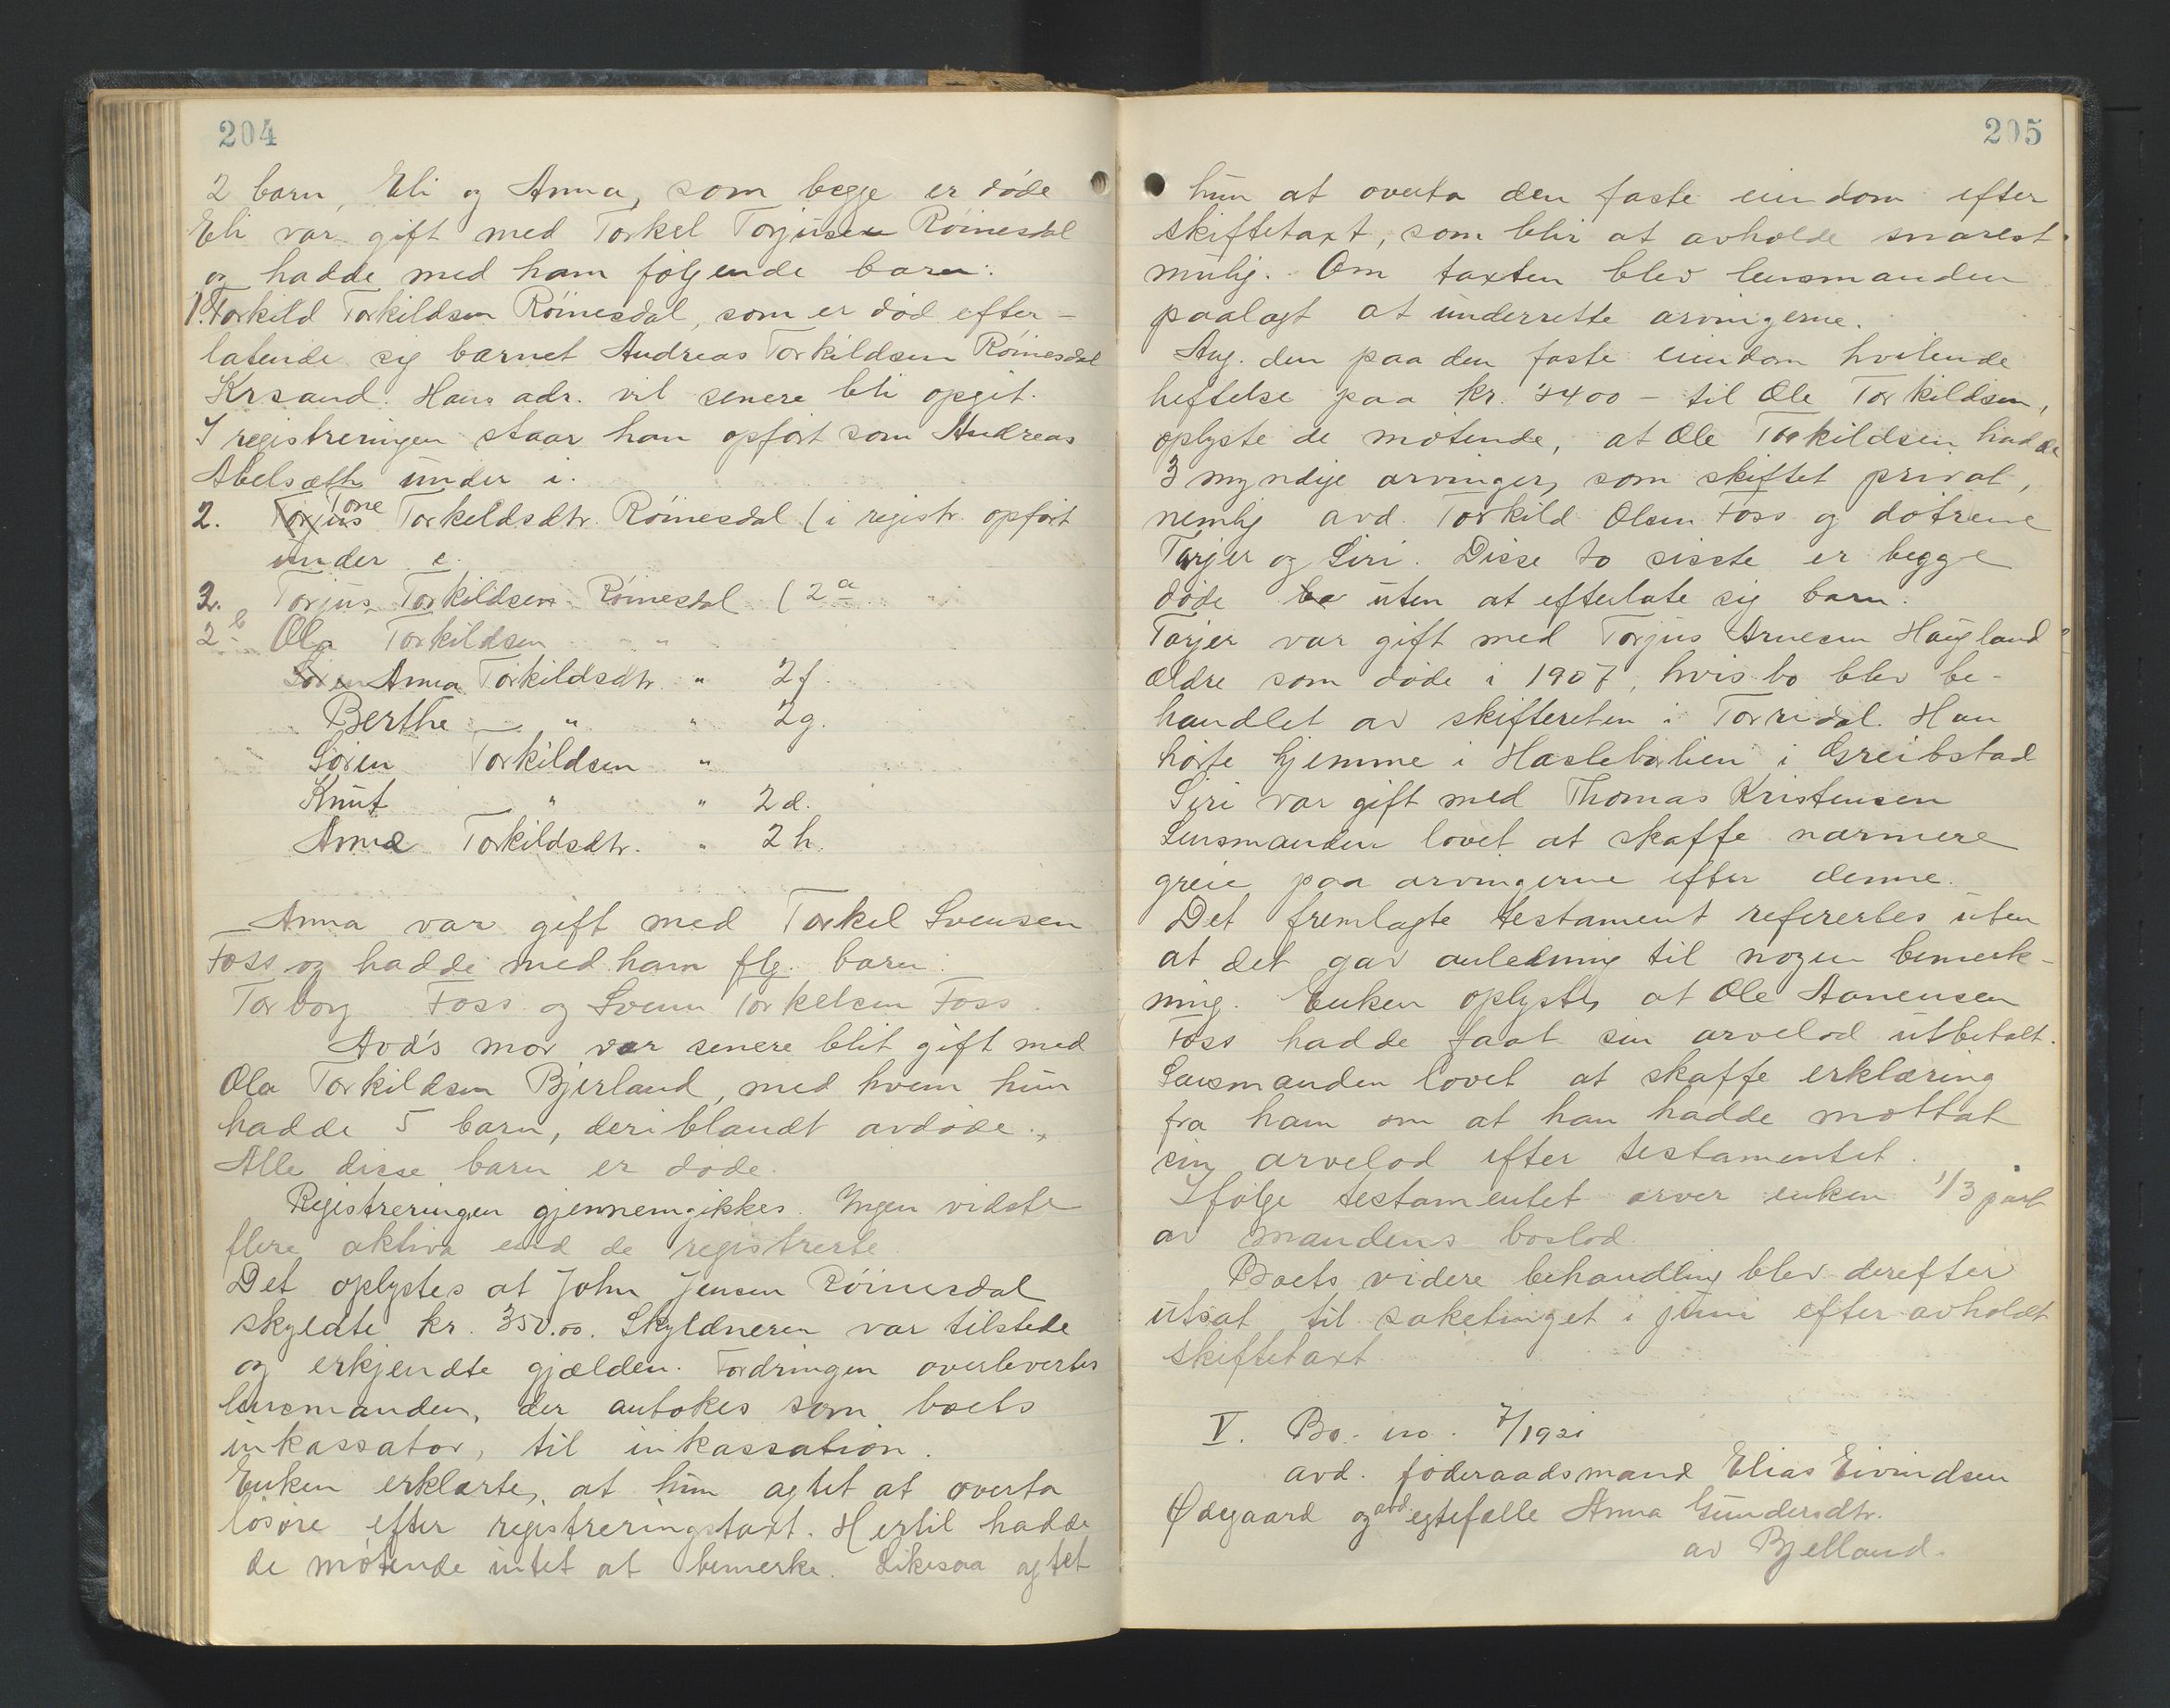 204
2 barn, Eli og Anna, som begge er døde
Eli var gift med Torkel Torjusen Röinesdal
og hadde med ham følgende barn:
1. Torkild Torkildsen Röinesdal, som er död efter-
latende sig barnet Andreas Torkildsen Röinesdal
Krsand. Hans adr. vil senere bli opgit.
I registreringen staar han opfört som Andreas
Abelsæth under i.
2. Torjus Tone Torkeldsdtr. Röinesdal (i registr. opfört
under e.
3. Torjus Torkildsen Röinesdal (2a
2b Ola Torkildsen " "
Søren Anna Torkildsdtr. " 2f.
Berthe — " " 2g.
Sören Torkildsen "
Knut " " 2d.
Anna Torkildsdtr. " 2h.
Anna var gift med Torkel Svensen
Foss og hadde med ham flg. barn:
Torborg Foss og Svenn Torkelsen Foss.
Avd's mor var senere blit gift med
Ola Torkildsen Bjerland, med hvem hun
hadde 5 barn, deriblandt avdøde.,
Alle disse barn er døde.
Registreringen gjennemgikkes. Ingen vidste
flere aktiva end de registrerte
Det oplystes at John Jensen Röinesdal
skyldte kr. 350.00. Skyldneren var tilstede
og erkjendte gjælden. Fordringen overlevertes
lensmanden, der antokes som boets
inkassator, til inkassation.
Enken erklærte, at hun agtet at overta
løsøre efter registreringstaxt. Hertil hadde
de møtende intet at bemerke. Likesaa agtet
205
hun at overta den faste eiendom efter
skiftetaxt, som blir at avholde snarest
mulig. Om taxten blev lensmanden
paalagt at underrette arvingerne.
Ang. den paa den faste eiendom hvilende
heftelse paa kr. 3400 - til Ole Torkildsen,
oplyste de møtende, at Ole Torkildsen hadde
3 myndige arvinger, som skiftet privat,
nemlig avd. Torkild Olsen Foss og døtrene
Tarjer og Siri. Disse to sisste er begge
døde uten at efterlate sig barn.
Tarjer var gift med Torjus Arnesen Haugland
ældre som døde i 1907, hvis bo blev be-
handlet av skifteretten i Torridal. Han
hørte hjemme i Haslebakken i Greibstad
Siri var gift med Thomas Kristensen
Lensmanden lovet at skaffe nærmere
greie paa arvingerne efter denne.
Det fremlagte testament refereres uten
at det gav anledning til nogen bemerk-
ning. Enken oplyste, at Ole Aanensen
Foss hadde faat sin arvelod utbetalt.
Lensmanden lovet at skaffe erklæring
fra ham om at han hadde mottat
sin arvelod efter testamentet.
Ifølge testamentet arver enken 1/3 part
av mandens boslod.
Boets videre behandling blev derefter
utsat til saketinget i juni efter avholdt
skiftetaxt
V. Bo. no. 7/1921
avd. føderaadsmand Elias Eivindsen
Ødegaard og avd. egtefælle Anna Gundersdtr.
av Bjelland.